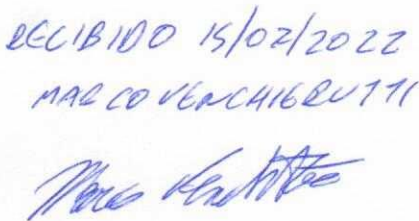 RECIBIDO 15/02/2022
MARCO VENCHIERUTTI